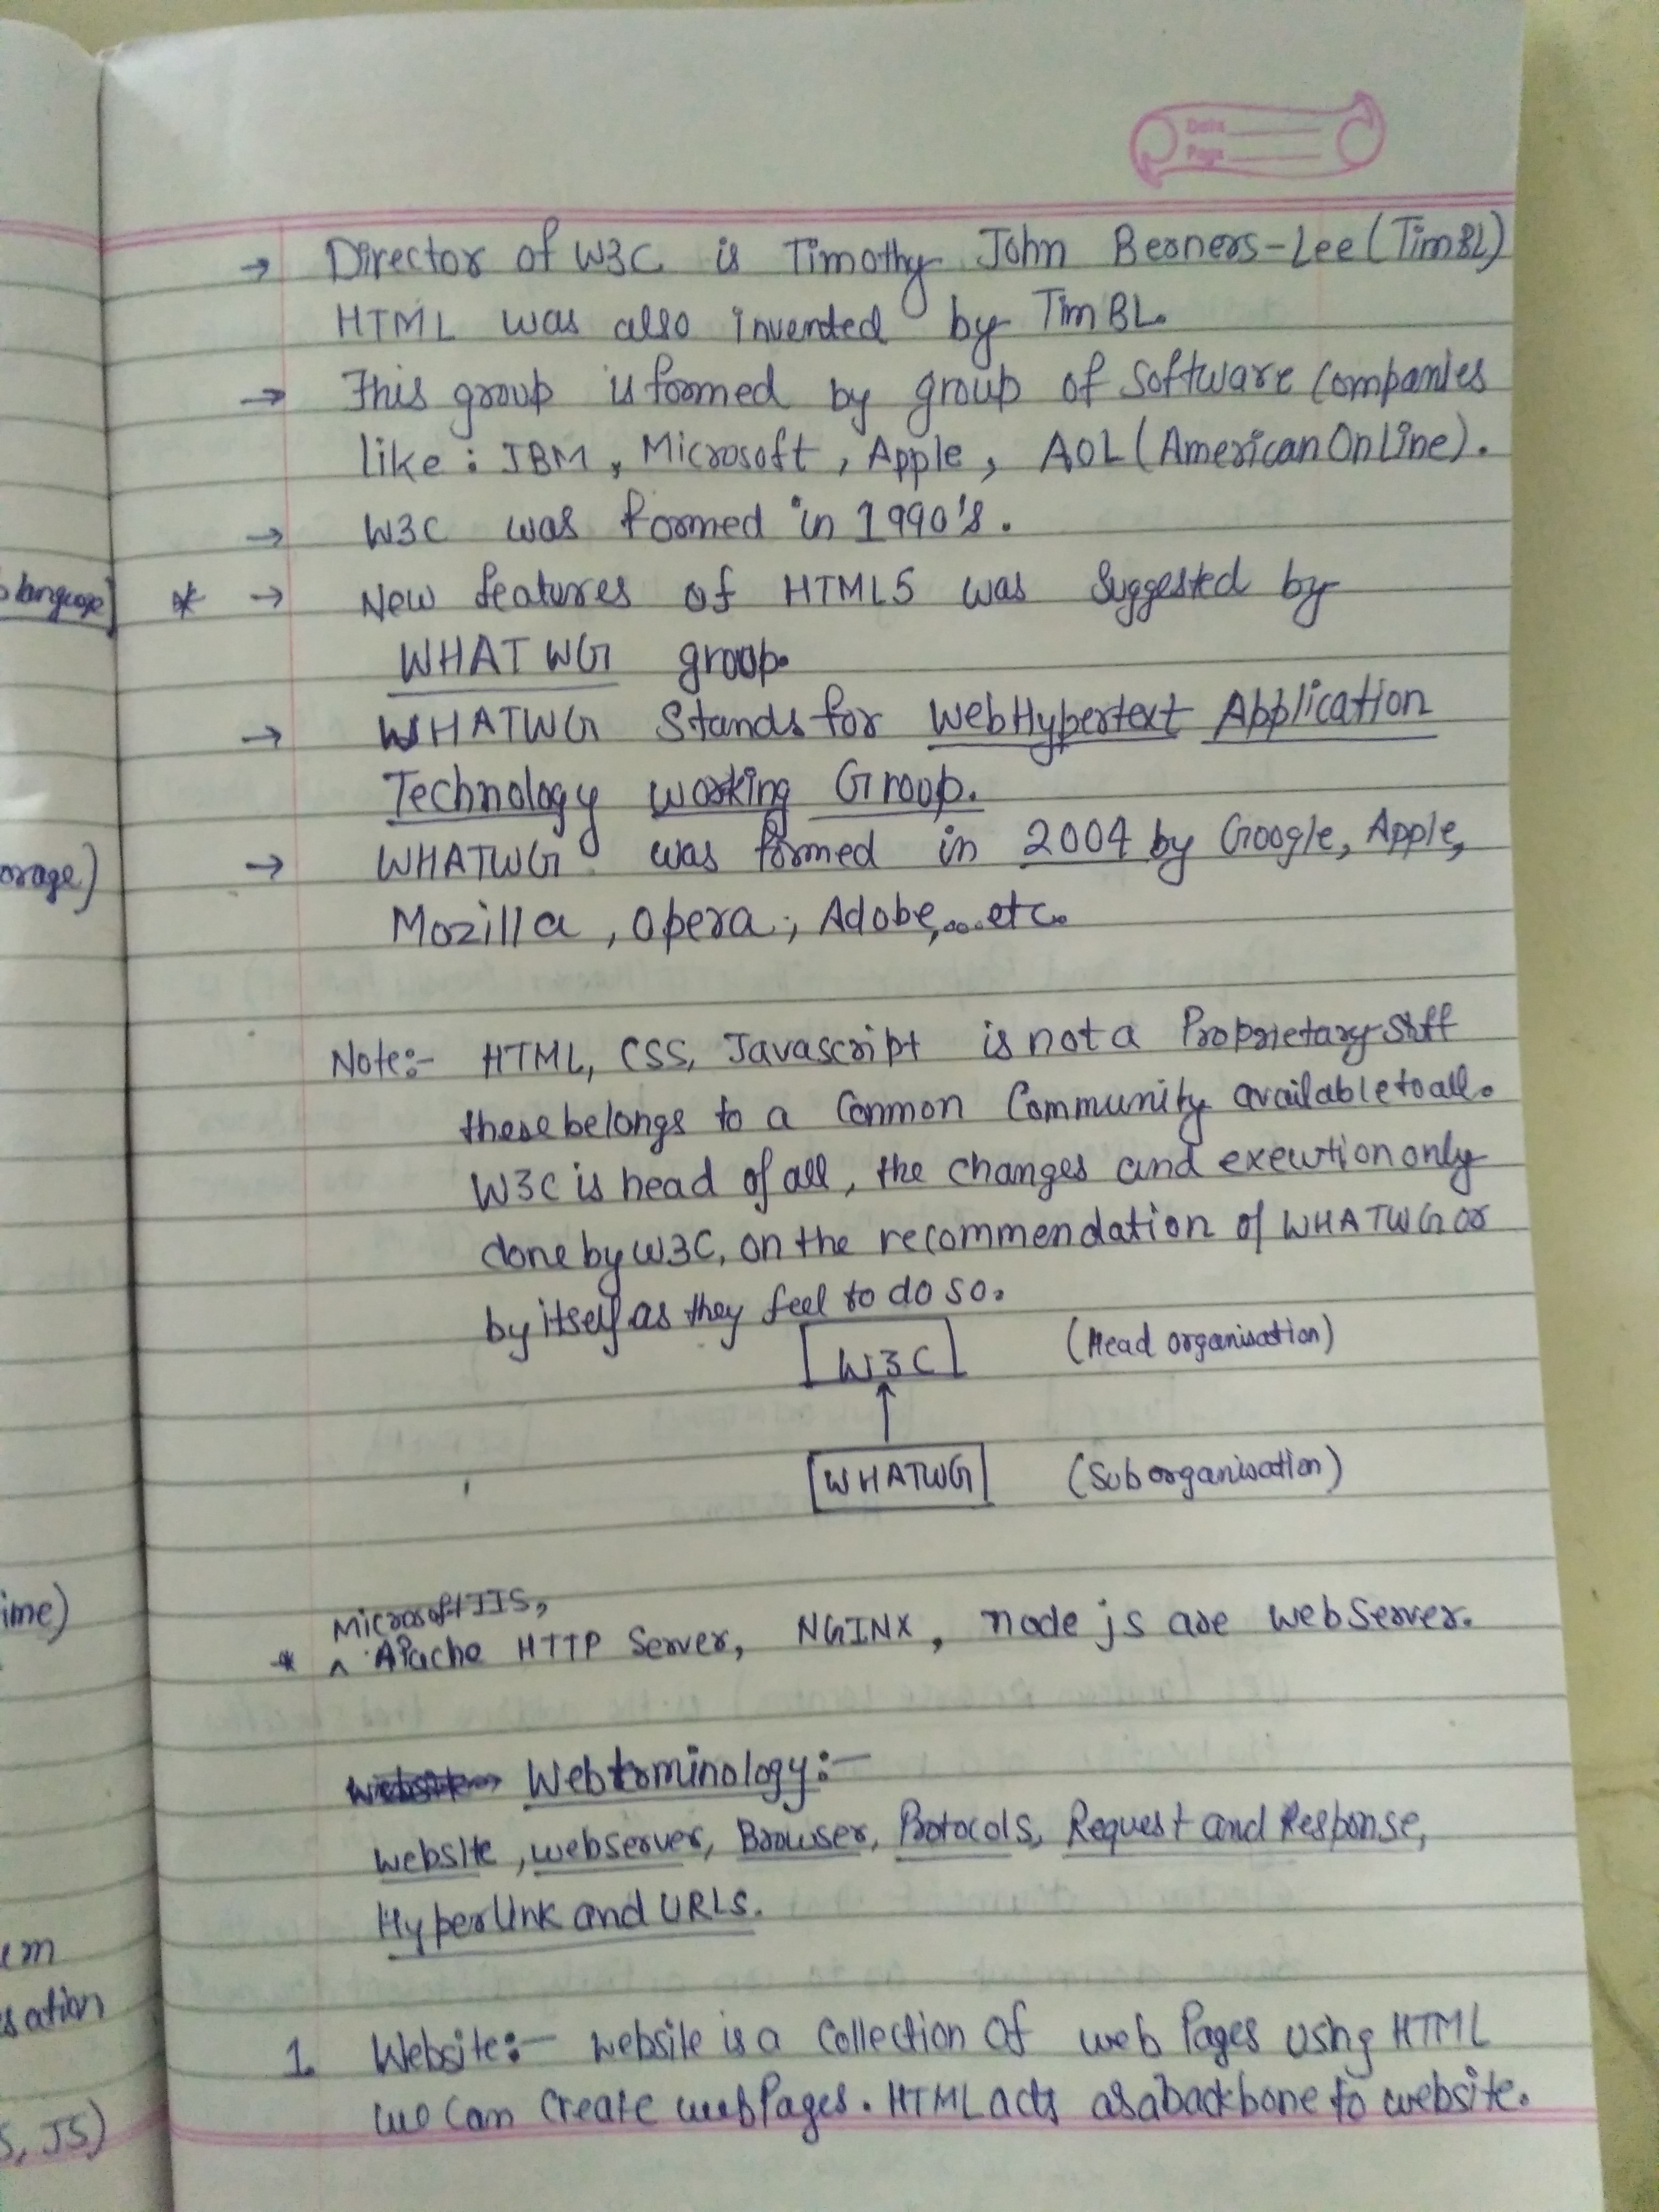 Date
Page
→ Director of W3C is Timothy John Beoners-Lee (TimBL)
HTML was also invented by TimBL.
→ This group is formed by group of software companies
like : IBM, Microsoft, Apple, AOL (American OnLine).
→ W3C was formed in 1990's.
language]
* → New features of HTML5 was suggested by
WHATWG group.
→ WHATWG Stands for Web Hypertext Application
Technology working Group.
orage)
→ WHATWG was formed in 2004 by Google, Apple,
Mozilla, Opera, Adobe,....etc.
Note:- HTML, CSS, Javascript is not a Proprietary stff
these belongs to a Common Community available to all.
W3C is head of all, the changes and exewtion only
done by W3C, on the recommendation of WHATWG or
by itself as they feel to do so.
W3C (Head organisation)
↑
WHATWG (Sub organisation)
ime)
Microsoft IIS,
* ^ Apache HTTP Server, NGINX, node js are web Server.
Web terminology:-
website, webserver, Browser, Protocols, Request and Response,
Hyperlink and URLS.
em
sation
1. Website:- website is a collection of web Pages using HTML
we can create web Pages. HTML acts as a backbone to website.
S, JS)